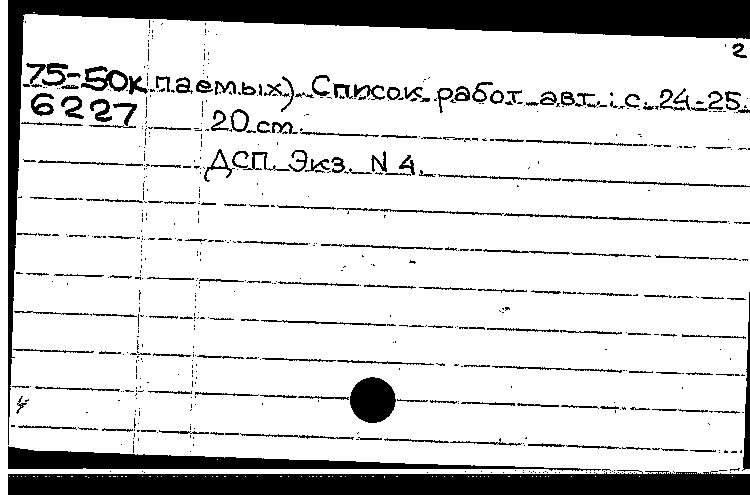 2
75-50к паемых). Список работ авт.: с. 24-25.
6227 20 cm.
ДСП. Экз. N 4.